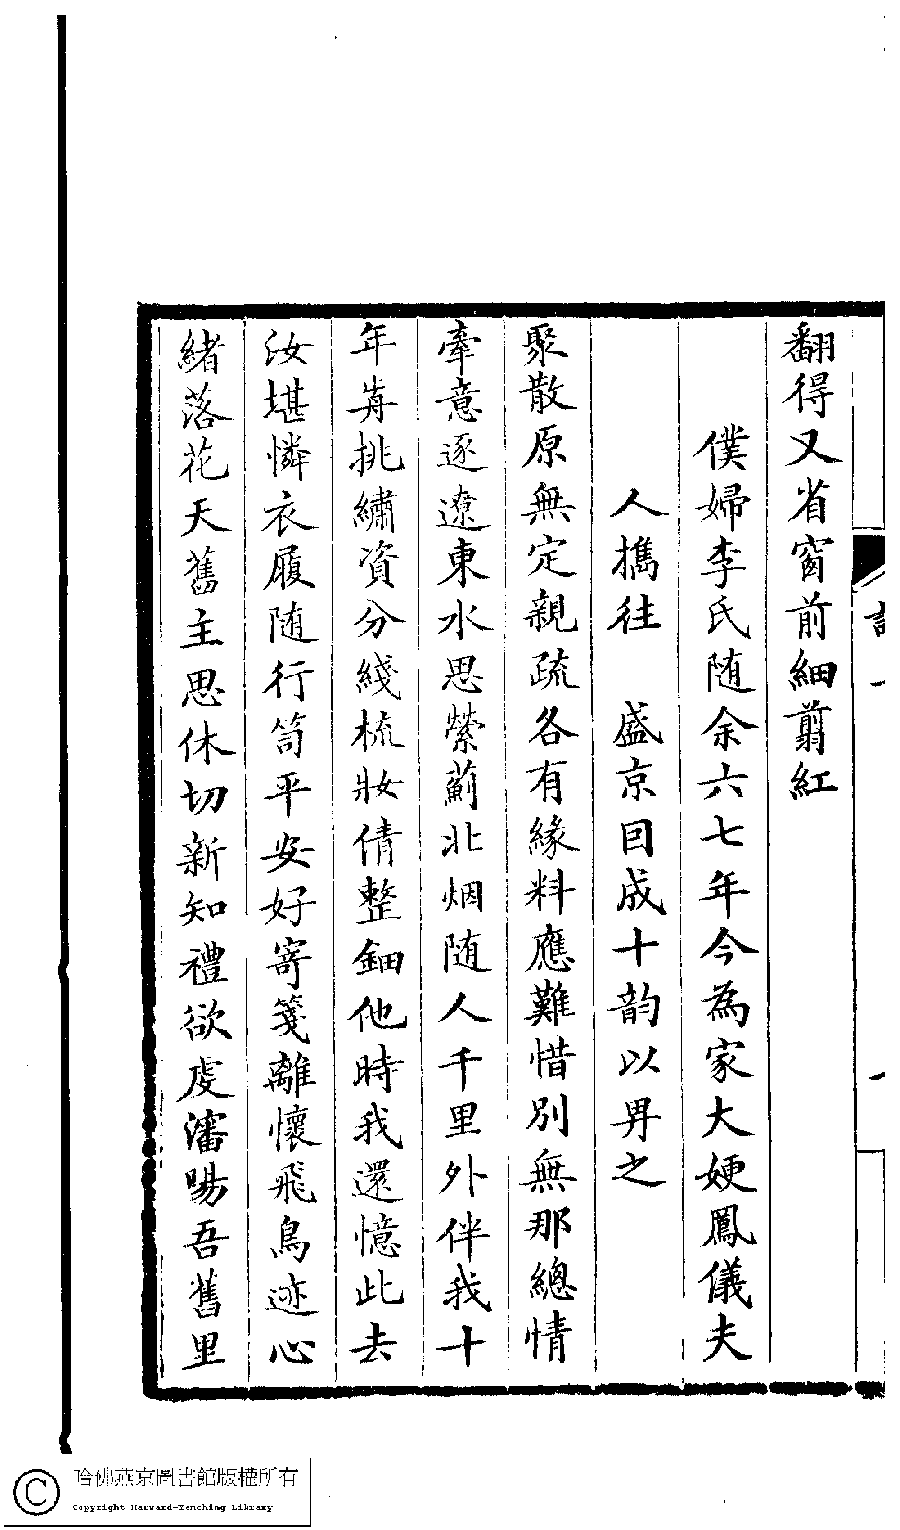 翻得又省窗前細剪紅
僕婦李氏随余六七年今為家大㛐鳳儀夫
人擕往　盛京因成十韵以畀之
聚散原無定親疏各有緣料應難惜別無那總情
牽意逐遼東水思縈薊北烟随人千里外伴我十
年歬挑繡資分綫梳妝倩整鈿他時我還憶此去
汝堪憐衣履随行笥平安好寄箋離懷飛鳥迹心
緒落花天舊主思休切新知禮欲虔瀋陽吾舊里
哈佛燕京圖書館版權所有
Copyright Harvard-Yenching Library